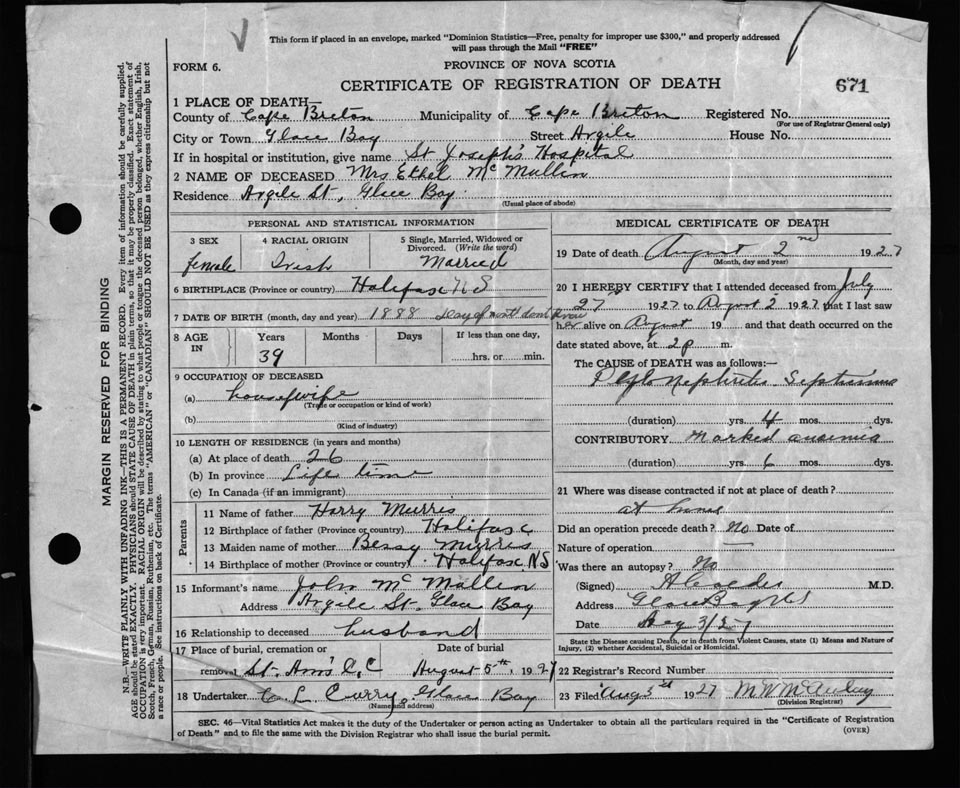 This form if placed in an envelope, marked "Dominion Statistics—Free, penalty for improper use $300," and properly addressed
will pass through the Mail "FREE"
FORM 6.
PROVINCE OF NOVA SCOTIA
CERTIFICATE OF REGISTRATION OF DEATH
671
1 PLACE OF DEATH—
County of Cape Breton Municipality of Cape Breton Registered No.
(For use of Registrar General only)
City or Town Glace Bay Street Argile House No.
If in hospital or institution, give name St Joseph's Hospital
2 NAME OF DECEASED Mrs Ethel McMullin
Residence Argile St, Glace Bay.
(Usual place of abode)
PERSONAL AND STATISTICAL INFORMATION
3 SEX 4 RACIAL ORIGIN 5 Single, Married, Widowed or
Divorced. (Write the word)
female Irish Married
6 BIRTHPLACE (Province or country) Halifax NS
7 DATE OF BIRTH (month, day and year) 1888 Day of month dont know
8 AGE IN Years Months Days If less than one day,
39 hrs. or min.
9 OCCUPATION OF DECEASED
(a) housewife
(Trade or occupation or kind of work)
(b)
(Kind of industry)
10 LENGTH OF RESIDENCE (in years and months)
(a) At place of death 26
(b) In province Life time
(c) In Canada (if an immigrant)
Parents
11 Name of father Harry Murris
12 Birthplace of father (Province or country) Halifax
13 Maiden name of mother Bessy Murris
14 Birthplace of mother (Province or country) Halifax NS
15 Informant's name John McMullin
Address Argile St. Glace Bay
16 Relationship to deceased husband
17 Place of burial, cremation or Date of burial
removal St. Ann's C.C August 5th, 1927
18 Undertaker C. L. Curry, Glace Bay
(Name and address)
MEDICAL CERTIFICATE OF DEATH
19 Date of death August 2nd 1927
(Month, day and year)
20 I HEREBY CERTIFY that I attended deceased from July
27 1927 to August 2 1927 that I last saw
her alive on August 19 and that death occurred on
the date stated above, at 2 p m.
The CAUSE of DEATH was as follows:—
Pyelo Nephritis
(duration) yrs. 4 mos. dys.
CONTRIBUTORY Marked anaemia
(duration) yrs. 6 mos. dys.
21 Where was disease contracted if not at place of death?
at home
Did an operation precede death? No Date of
Nature of operation
Was there an autopsy? No
(Signed) M.D.
Address Glace Bay NS
Date Aug 3/27
State the Disease causing Death, or in death from Violent Causes, state (1) Means and Nature of
Injury, (2) whether Accidental, Suicidal or Homicidal.
22 Registrar's Record Number
23 Filed Aug 3rd 1927
(Division Registrar)
SEC. 46—Vital Statistics Act makes it the duty of the Undertaker or person acting as Undertaker to obtain all the particulars required in the "Certificate of Registration
of Death" and to file the same with the Division Registrar who shall issue the burial permit.
(OVER)
MARGIN RESERVED FOR BINDING
N.B.—WRITE PLAINLY WITH UNFADING INK—THIS IS A PERMANENT RECORD. Every item of information should be carefully supplied.
AGE should be stated EXACTLY. PHYSICIANS should STATE CAUSE OF DEATH in plain terms, so that it may be properly classified. Exact statement of
OCCUPATION is very important. RACIAL ORIGIN will be described by stating to what people or tongue the deceased person belonged, whether English, Irish,
Scotch, French, German, Russian, Ruthenian, etc. The terms "AMERICAN" or "CANADIAN" SHOULD NOT BE USED as they express citizenship but not
a race or people. See instructions on back of Certificate.